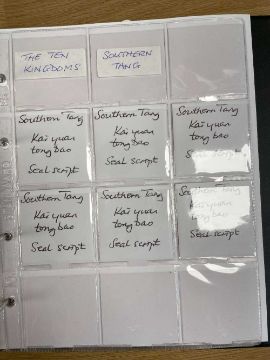 THE TEN
KINGDOMS
SOUTHERN
TANG
Southern Tang
Kai yuan
tong bao
Seal script
Southern Tang
Kai yuan
tong bao
Seal script
Southern Tang
Kai yuan
tong bao
Seal script
Southern Tang
Kai yuan
tong bao
Seal script
Southern Tang
Kai yuan
tong bao
Seal script
Southern Tang
Kai yuan
tong bao
Seal script